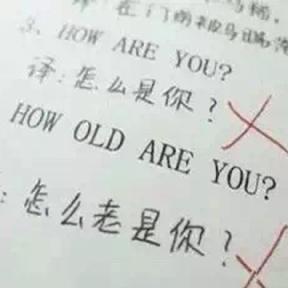 译:在门前和马路
3、HOW ARE YOU?
译:怎么是你?
HOW OLD ARE YOU?
:怎么老是你?